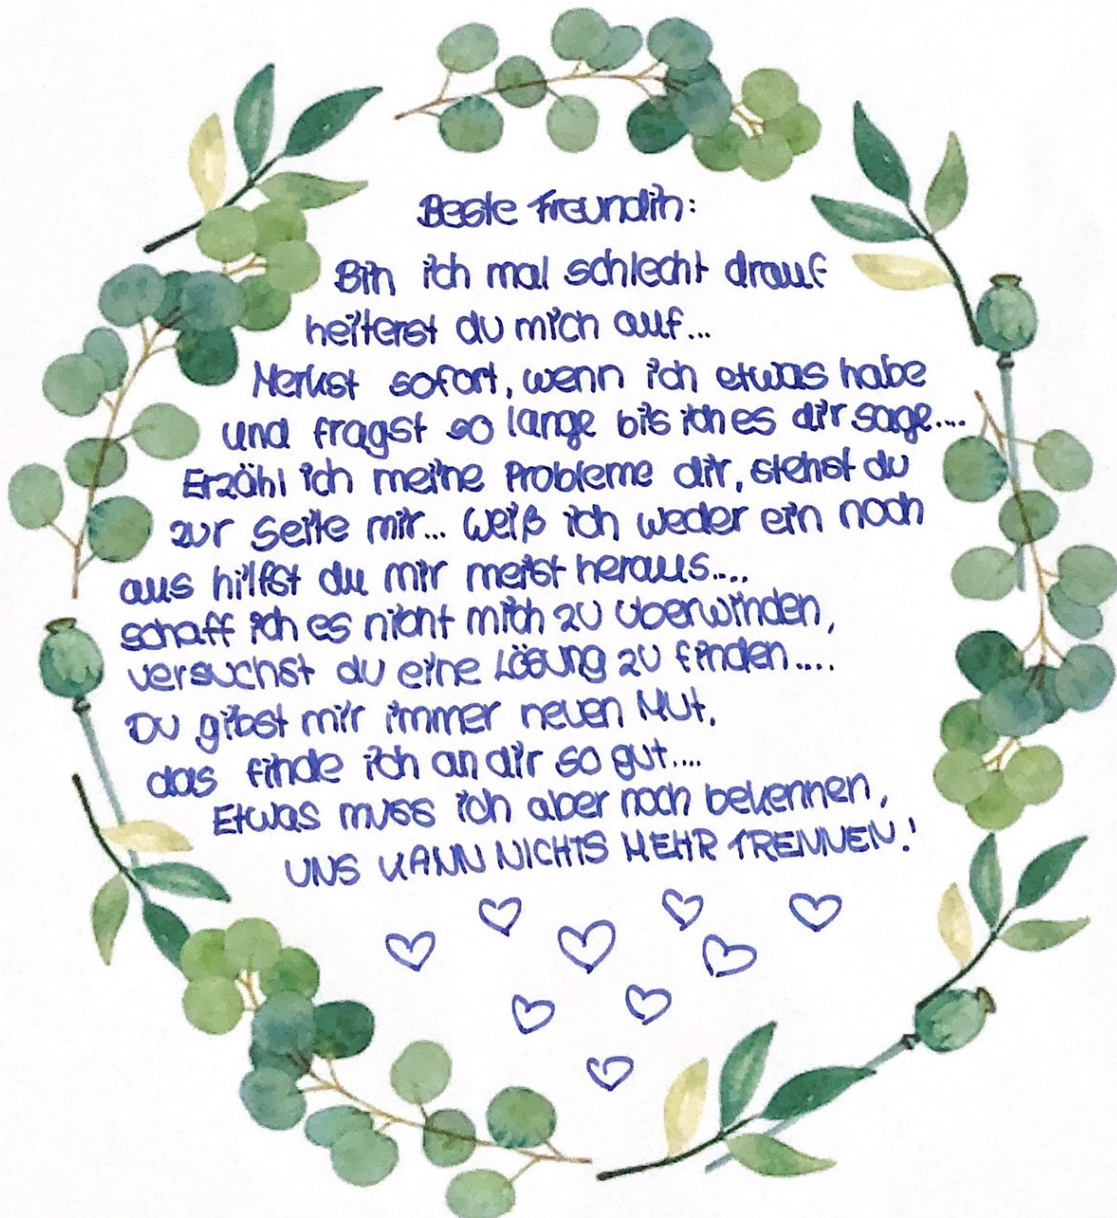 Beste Freundin:
Bin ich mal schlecht drauf
heiterst du mich auf...
Merkst sofort, wenn ich etwas habe
und fragst so lange bis ich es dir sage....
Erzähl ich meine Probleme dir, stehst du
zur Seite mir... Weiß ich weder ein noch
aus hilfst du mir meist heraus....
schaff ich es nicht mich zu überwinden,
versuchst du eine Lösung zu finden....
Du gibst mir immer neuen Mut,
das finde ich an dir so gut....
Etwas muss ich aber noch bekennen,
UNS KANN NICHTS MEHR TRENNEN!